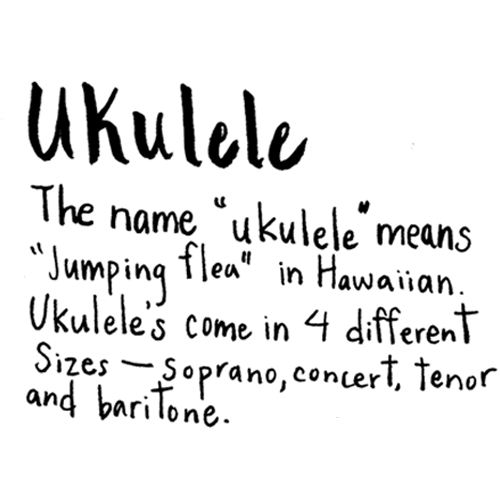 Ukulele
The name "ukulele" means
"Jumping flea" in Hawaiian.
Ukulele's come in 4 different
Sizes — soprano, concert, tenor
and baritone.